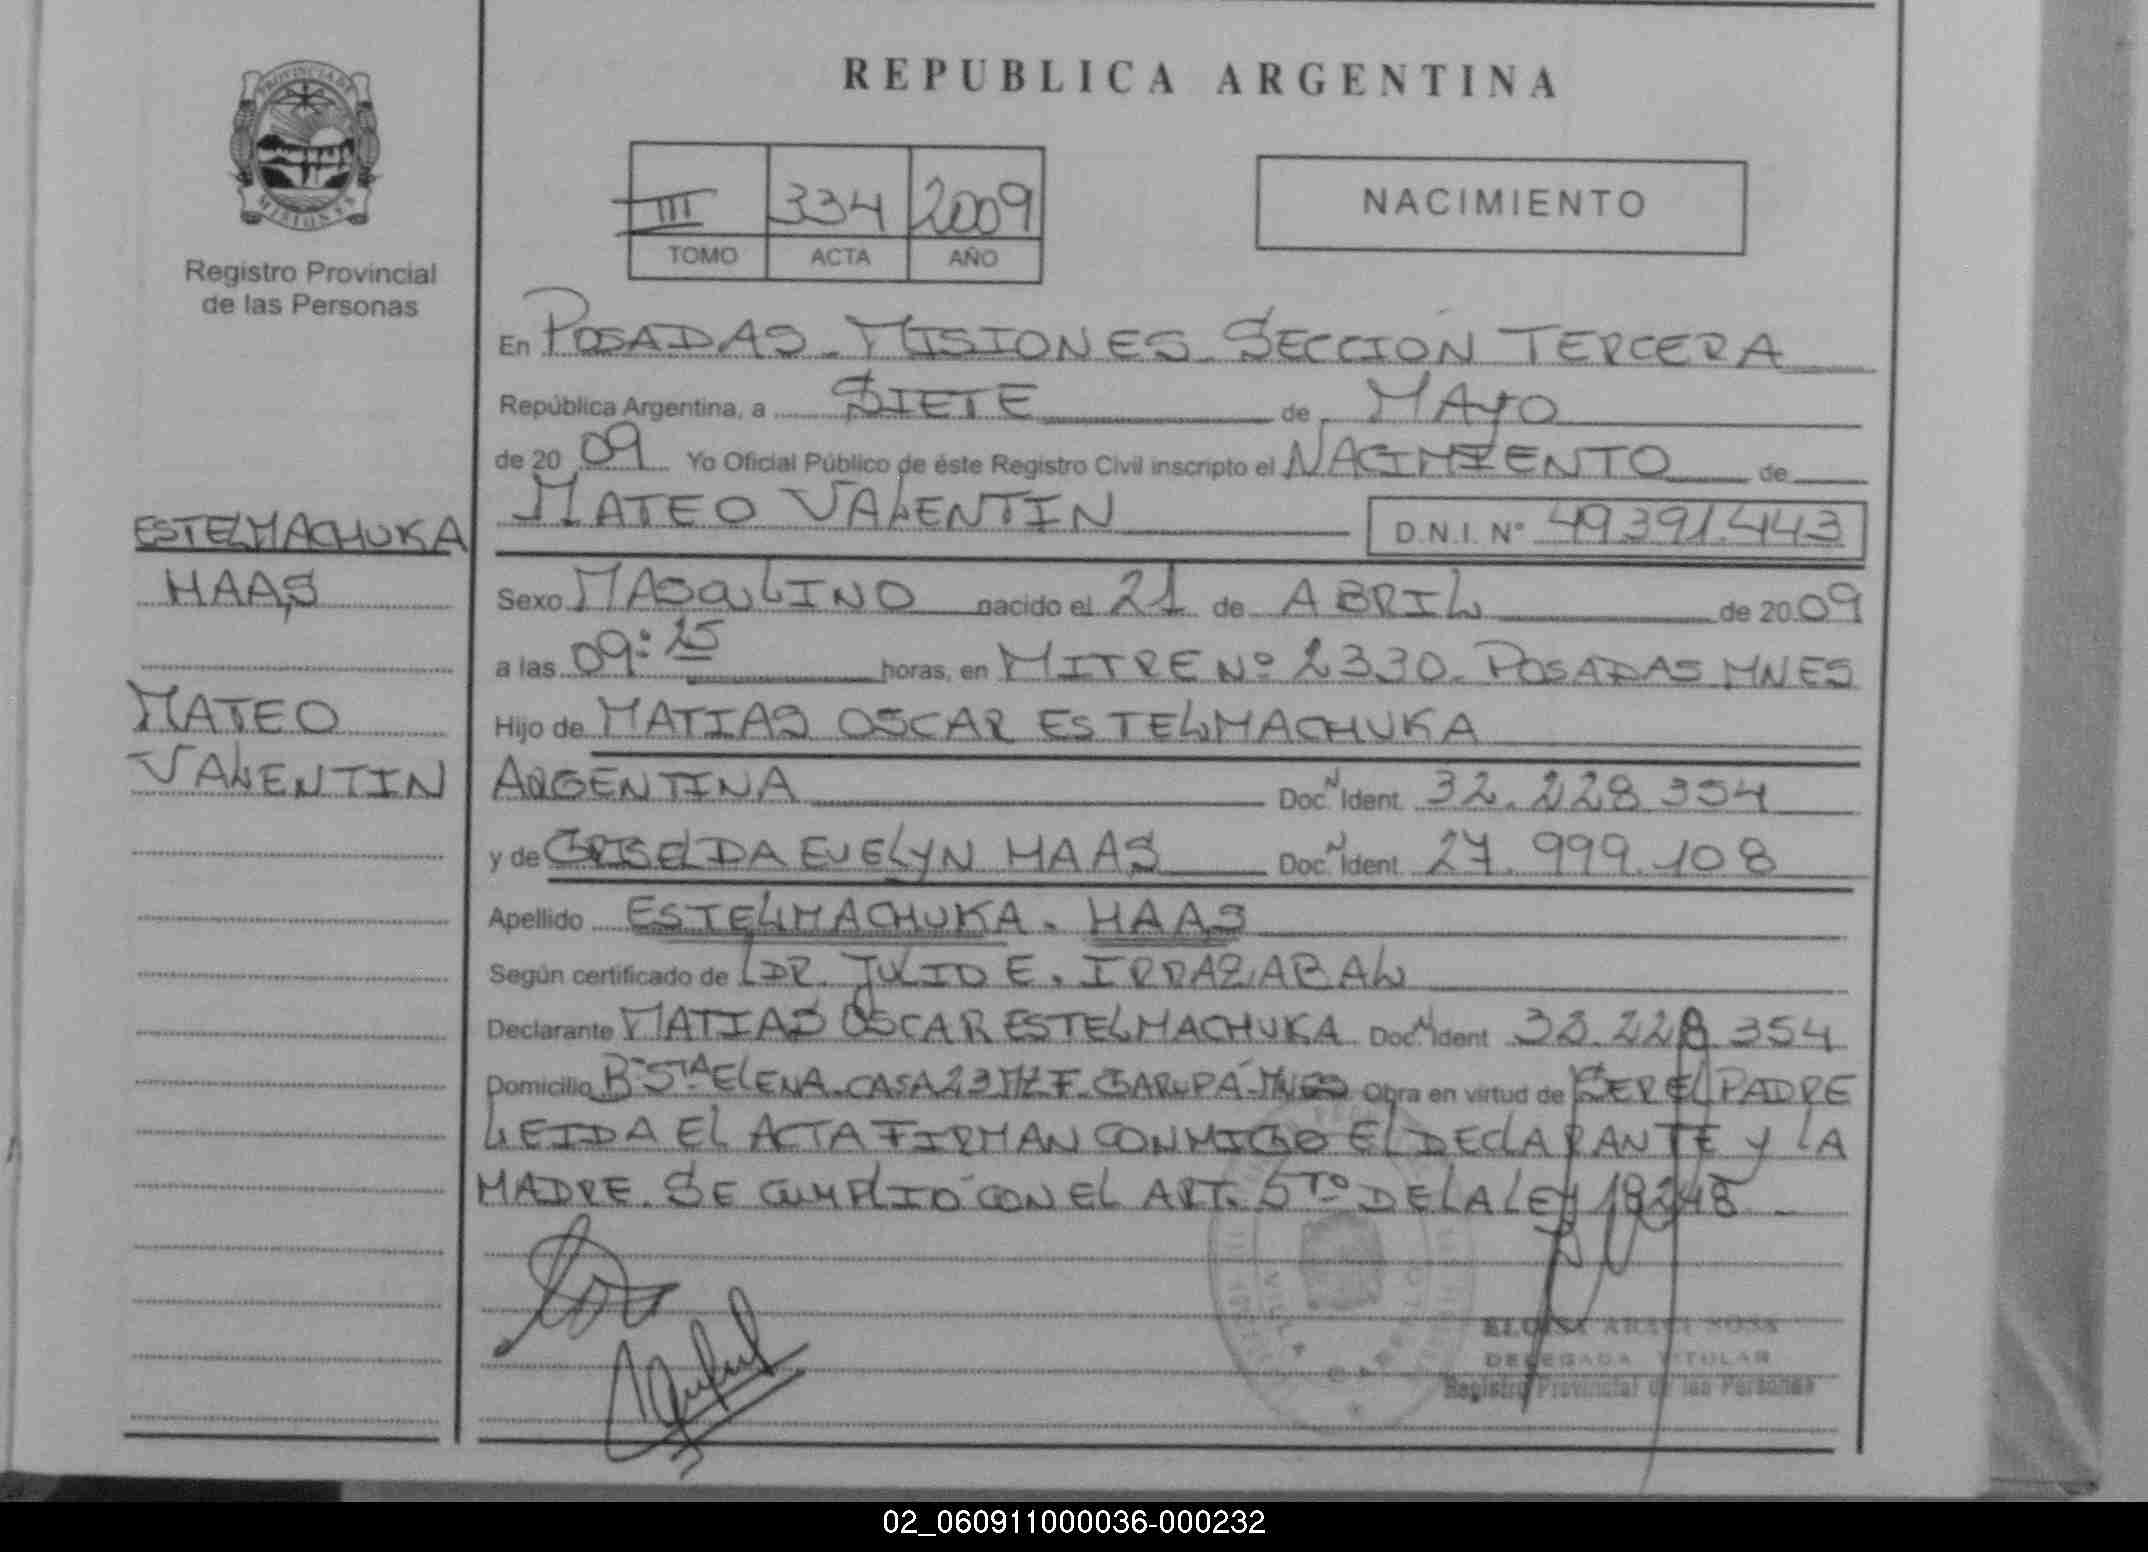 PROVINCIA DE
MISIONES
Registro Provincial
de las Personas
ESTELMACHUKA
HAAS
MATEO
VALENTIN
REPUBLICA ARGENTINA
III 334 2009
TOMO ACTA AÑO
NACIMIENTO
En POSADAS - MISIONES - SECCIÓN TERCERA
República Argentina, a SIETE de MAYO
de 20 09 Yo Oficial Público de éste Registro Civil inscripto el NACIMIENTO de
MATEO VALENTIN D.N.I. Nº 49.391.443
Sexo MASCULINO nacido el 21 de ABRIL de 20 09
a las 09:25 horas, en MITRE Nº 2330 - POSADAS MNES
Hijo de MATIAS OSCAR ESTELMACHUKA
ARGENTINA Doc. N Ident. 32.228.354
y de GRISELDA EVELYN HAAS Doc. N Ident. 27.999.108
Apellido ESTELMACHUKA - HAAS
Según certificado de DR. JULIO E. IRRAZABAL
Declarante MATIAS OSCAR ESTELMACHUKA Doc. N Ident. 32.228.354
Domicilio Bº STA ELENA - CASA 23 MZ F - GARUPÁ - MNES Obra en virtud de SER EL PADRE
LEIDA EL ACTA FIRMAN CONMIGO EL DECLARANTE Y LA
MADRE. SE CUMPLIÓ CON EL ART. 5TO DE LA LEY 18248 -
DELEGADA TITULAR
Registro Provincial de las Personas
02_060911000036-000232